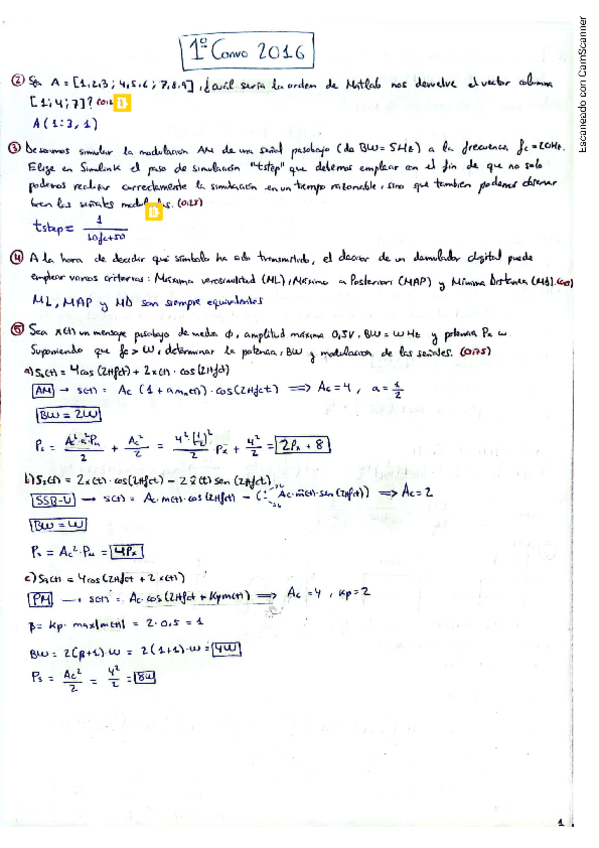 1º Convo 2016
② Sea A = [1,2,3 ; 4,5,6 ; 7,8,9], ¿cuál sería la orden de Matlab nos devuelve el vector columna
[1;4;7]?
A(1:3,1)
③ Deseamos simular la modulación AM de una señal pasobajo (de BW = 5Hz) a la frecuencia fc = 20Hz.
Elige en Simulink el paso de simulación "tstep" que debemos emplear con el fin de que no solo
podamos realizar correctamente la simulación en un tiempo razonable, sino que también podamos observar
bien las señales moduladas. (0.25)
tstep = 1 / 10fc+50
④ A la hora de decidir qué símbolo ha sido transmitido, el decisor de un demodulador digital puede
emplear varios criterios: Máxima verosimilitud (ML), Máximo a Posteriori (MAP) y Mínima Distancia (MD).
ML, MAP y MD son siempre equivalentes
⑤ Sea x(t) un mensaje pasobajo de media 0, amplitud máxima 0,5V, BW = W Hz y potencia Px w.
Suponiendo que fc > W, determinar la potencia, BW y modulación de las señales. (0.75)
a) S₁(t) = 4cos(2πfct) + 2x(t)·cos(2πfct)
AM → s(t) = Ac (1 + a mn(t)) · cos(2πfct) ⟹ Ac = 4, a = 1/2
BW = 2W
Ps = Ac²a²Pn/2 + Ac²/2 = 4²(1/2)²/2 · Px + 4²/2 = 2Px + 8
b) S₂(t) = 2x(t)·cos(2πfct) − 2x̂(t) sen(2πfct)
SSB-U → s(t) = Ac m(t)·cos(2πfct) − Ac·m̂(t)·sen(2πfct) ⟹ Ac = 2
BW = W
Ps = Ac²·Pm = 4Px
c) S₃(t) = 4cos(2πfct + 2x(t))
PM → s(t) = Ac·cos(2πfct + Kpm(t)) ⟹ Ac = 4, Kp = 2
β = Kp · max|m(t)| = 2·0,5 = 1
BW = 2(β+1)·W = 2(1+1)·W = 4W
Ps = Ac²/2 = 4²/2 = 8W
1
Escaneado con CamScanner